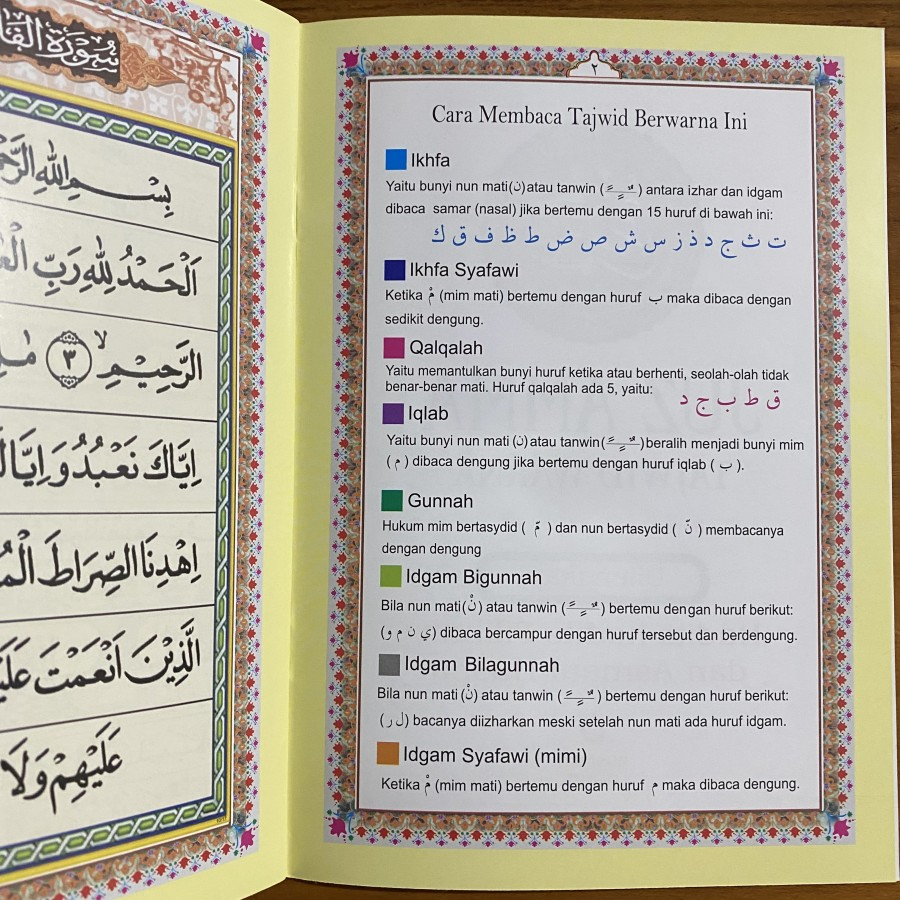 سُوْرَةُ
بِسْمِ اللّٰهِ
اَلْحَمْدُ لِلّٰهِ رَبِّ
الرَّحِيْمِۙ ٣
اِيَّاكَ نَعْبُدُ وَ
اِهْدِنَا الصِّرَاطَ
الَّذِيْنَ اَنْعَمْتَ
عَلَيْهِمْ وَلَا
٢
Cara Membaca Tajwid Berwarna Ini
Ikhfa
Yaitu bunyi nun mati(ن)atau tanwin ( ـًــٍــٌ ) antara izhar dan idgam
dibaca samar (nasal) jika bertemu dengan 15 huruf di bawah ini:
ت ث ج د ذ ز س ش ص ض ط ظ ف ق ك
Ikhfa Syafawi
Ketika مْ (mim mati) bertemu dengan huruf ب maka dibaca dengan
sedikit dengung.
Qalqalah
Yaitu memantulkan bunyi huruf ketika atau berhenti, seolah-olah tidak
benar-benar mati. Huruf qalqalah ada 5, yaitu:
ق ط ب ج د
Iqlab
Yaitu bunyi nun mati (ن)atau tanwin( ـًــٍــٌ )beralih menjadi bunyi mim
( م ) dibaca dengung jika bertemu dengan huruf iqlab ( ب ).
Gunnah
Hukum mim bertasydid ( مّ ) dan nun bertasydid ( نّ ) membacanya
dengan dengung
Idgam Bigunnah
Bila nun mati(نْ) atau tanwin ( ـًــٍــٌ ) bertemu dengan huruf berikut:
(ي ن م و) dibaca bercampur dengan huruf tersebut dan berdengung.
Idgam Bilagunnah
Bila nun mati (نْ) atau tanwin ( ـًــٍــٌ ) bertemu dengan huruf berikut:
(ل ر) bacanya diizharkan meski setelah nun mati ada huruf idgam.
Idgam Syafawi (mimi)
Ketika مْ (mim mati) bertemu dengan huruf م maka dibaca dengung.